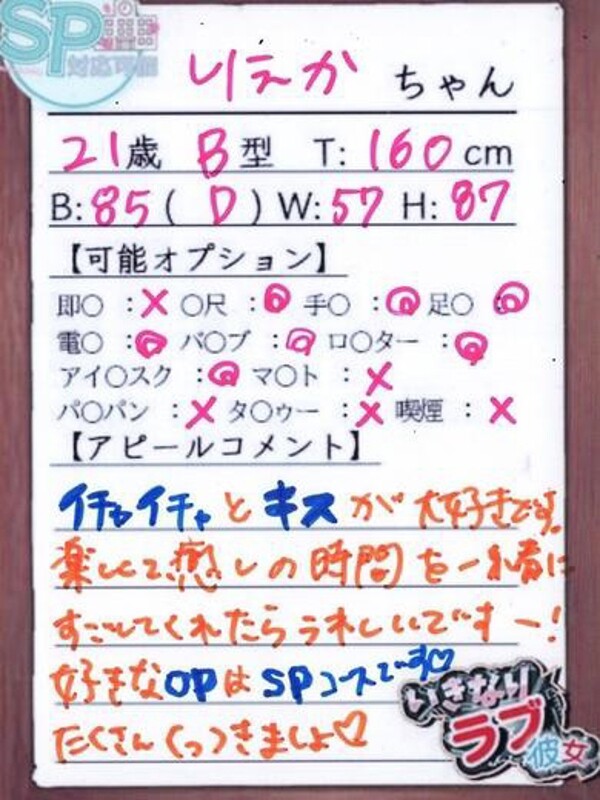 SP
対応可能
りえか ちゃん
21歳 B型 T:160cm
B:85(D)W:57 H:87
【可能オプション】
即〇 :× 〇尺 :◎ 手〇 :◎ 足〇 :◎
電〇 :◎ バ〇ブ :◎ ロ〇ター :◎
アイ〇スク :◎ マ〇ト :×
パ〇パン :× タ〇ゥー :× 喫煙 :×
【アピールコメント】
イチャイチャとキスが大好きです。
楽しくて癒しの時間を一緒に
すごしてくれたらうれしいですー!
好きなOPはSPコースです♡
たくさんくっつきましょ♡
いきなり
ラブ彼女